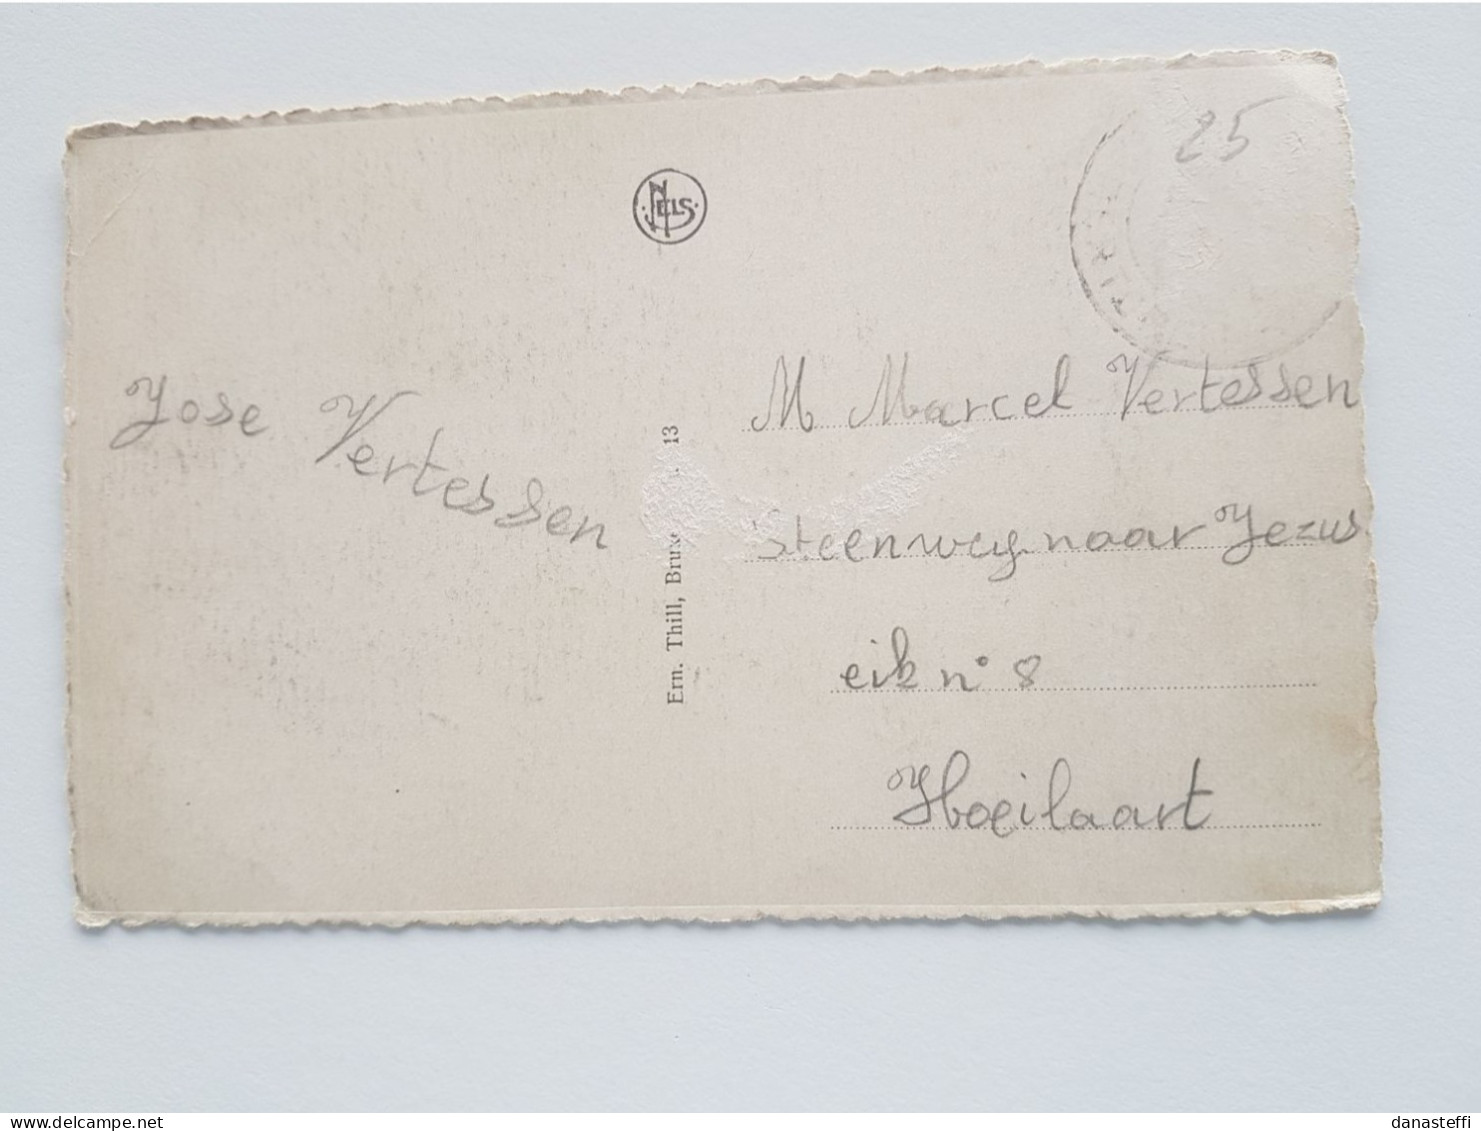 25
NELS
Jose Vertessen
M Marcel Vertessen
Steenweg naar Jezus
eik n° 8
Hoeilaart
Ern. Thill, 13
danasteffi
delcampe.net